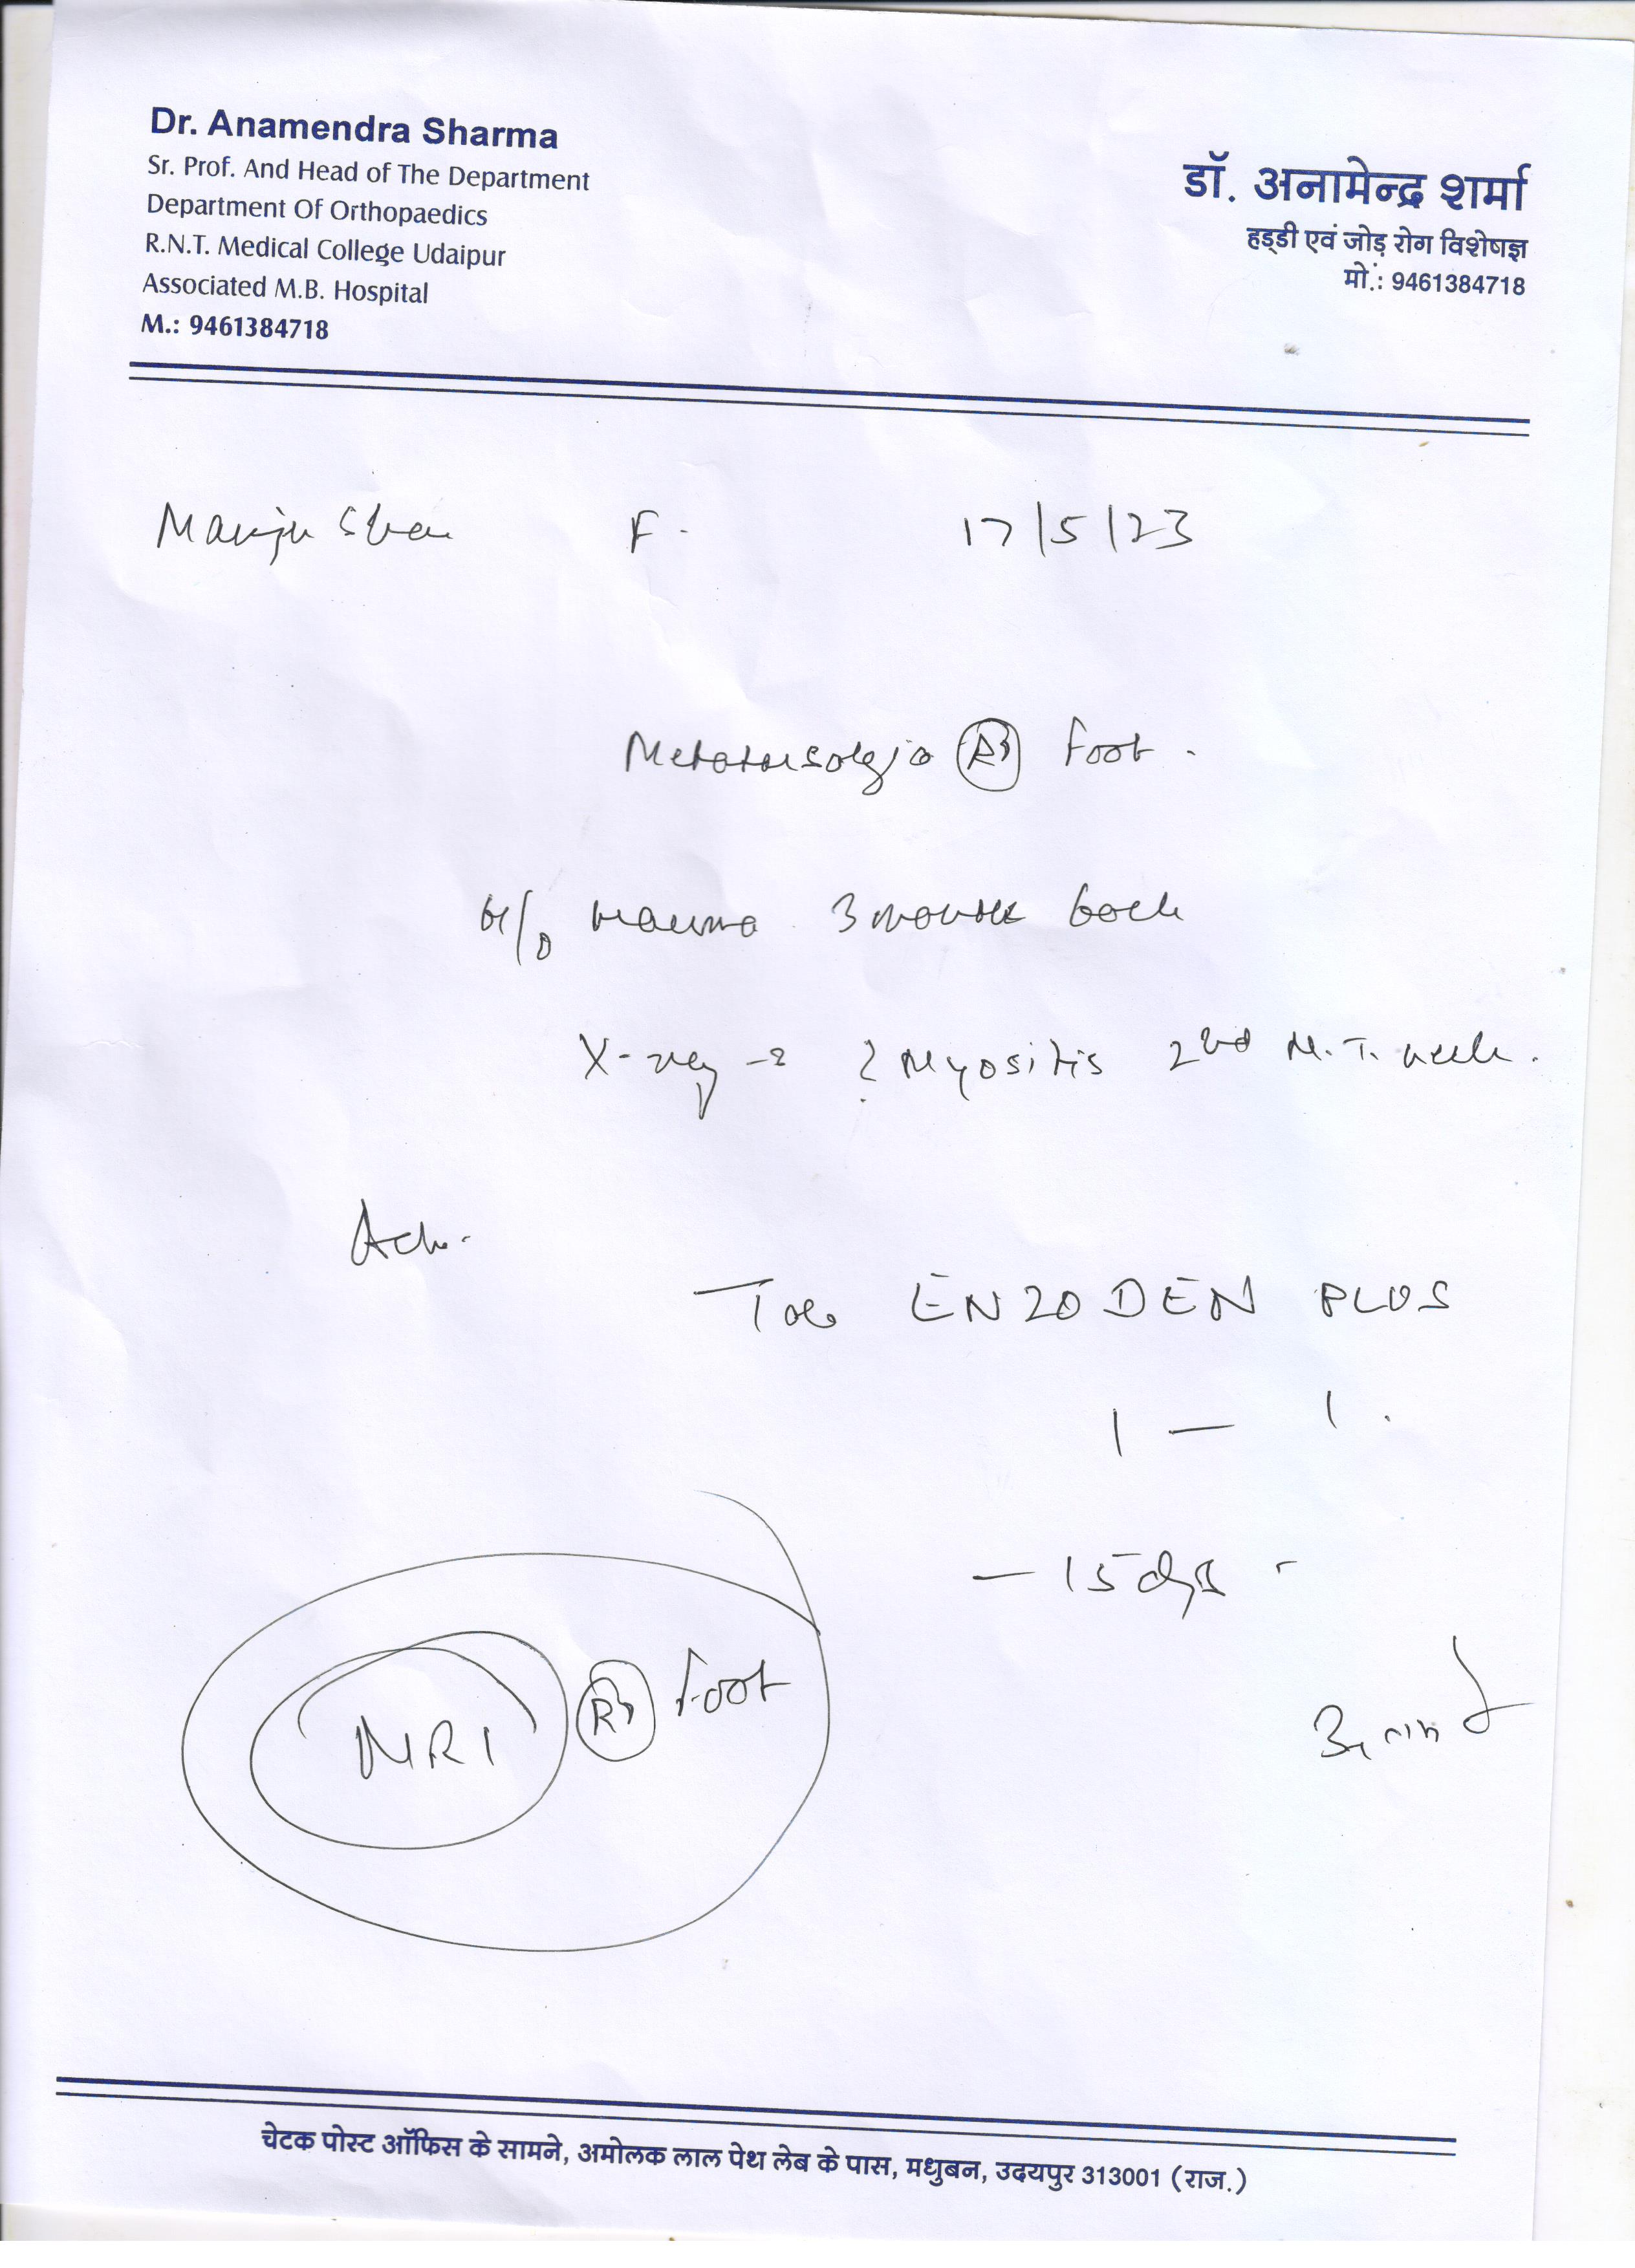 Dr. Anamendra Sharma
Sr. Prof. And Head of The Department
Department Of Orthopaedics
R.N.T. Medical College Udaipur
Associated M.B. Hospital
M.: 9461384718
डॉ. अनामेन्द्र शर्मा
हड्डी एवं जोड़ रोग विशेषज्ञ
मो.: 9461384718
Manju F. 17/5/23
Metatarsalgia Rt Foot.
H/o trauma 3 months back
X-ray → ? Myositis 2nd M.T. neck.
Adv.
Tab ENZODEN PLUS
1 — 1.
— 15 days -
MRI Rt Foot
चेटक पोस्ट ऑफिस के सामने, अमोलक लाल पेथ लेब के पास, मधुबन, उदयपुर 313001 (राज.)